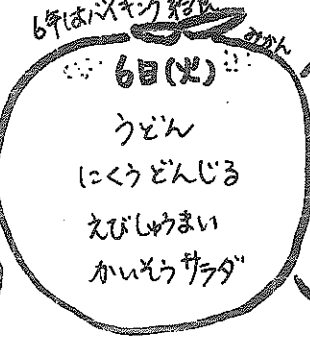 6年はバイキング給食
みかん
6日(火)
うどん
にくうどんじる
えびしゅうまい
かいそうサラダ